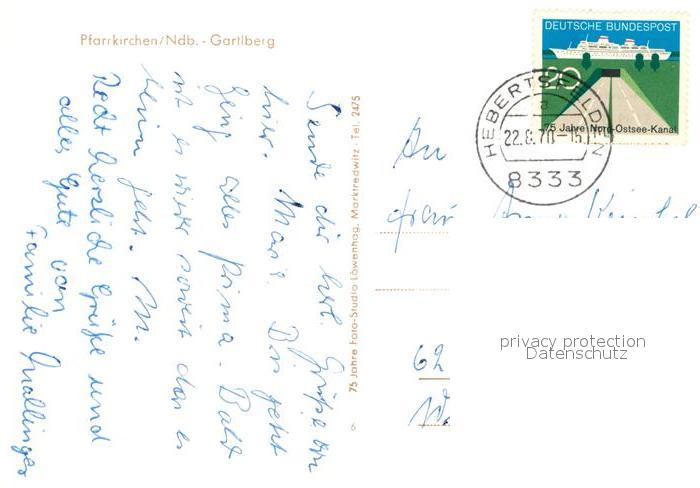 Pfarrkirchen/Ndb. - Gartlberg
Sende dir herzl. Grüße von
hier. Bin jetzt
ging alles prima. Bald
ist es wieder soweit das es
heim geht. M.
Recht herzliche Grüße und
alles Gute von
Familie Mallinger
75 Jahre Foto-Studio Löwenhag, Marktredwitz · Tel. 2475
6
DEUTSCHE BUNDESPOST
20
75 Jahre Nord-Ostsee-Kanal
HEBERTSFELDEN
a
22.8.70-15
8333
An
Frau
62
privacy protection
Datenschutz